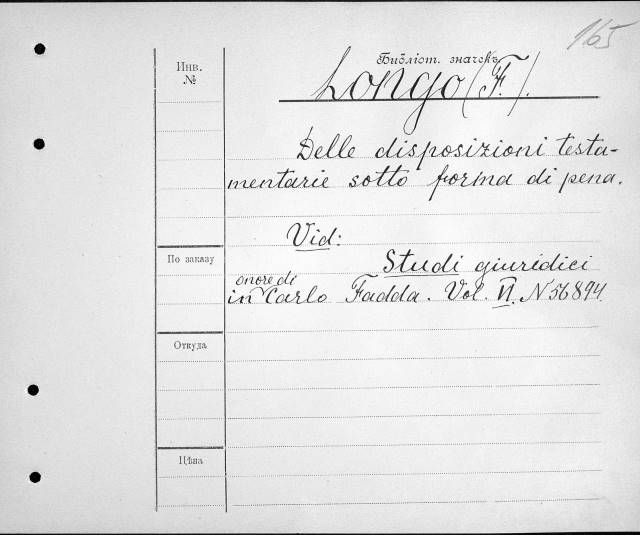 165
Инв.
№
Библіот. значекъ
Longo (F.).
Delle disposizioni testa-
mentarie sotto forma di pena.
Vid:
По заказу
Studi giuridici
onore di
in Carlo Fadda. Vol. VI. N 56894.
Откуда
Цѣна